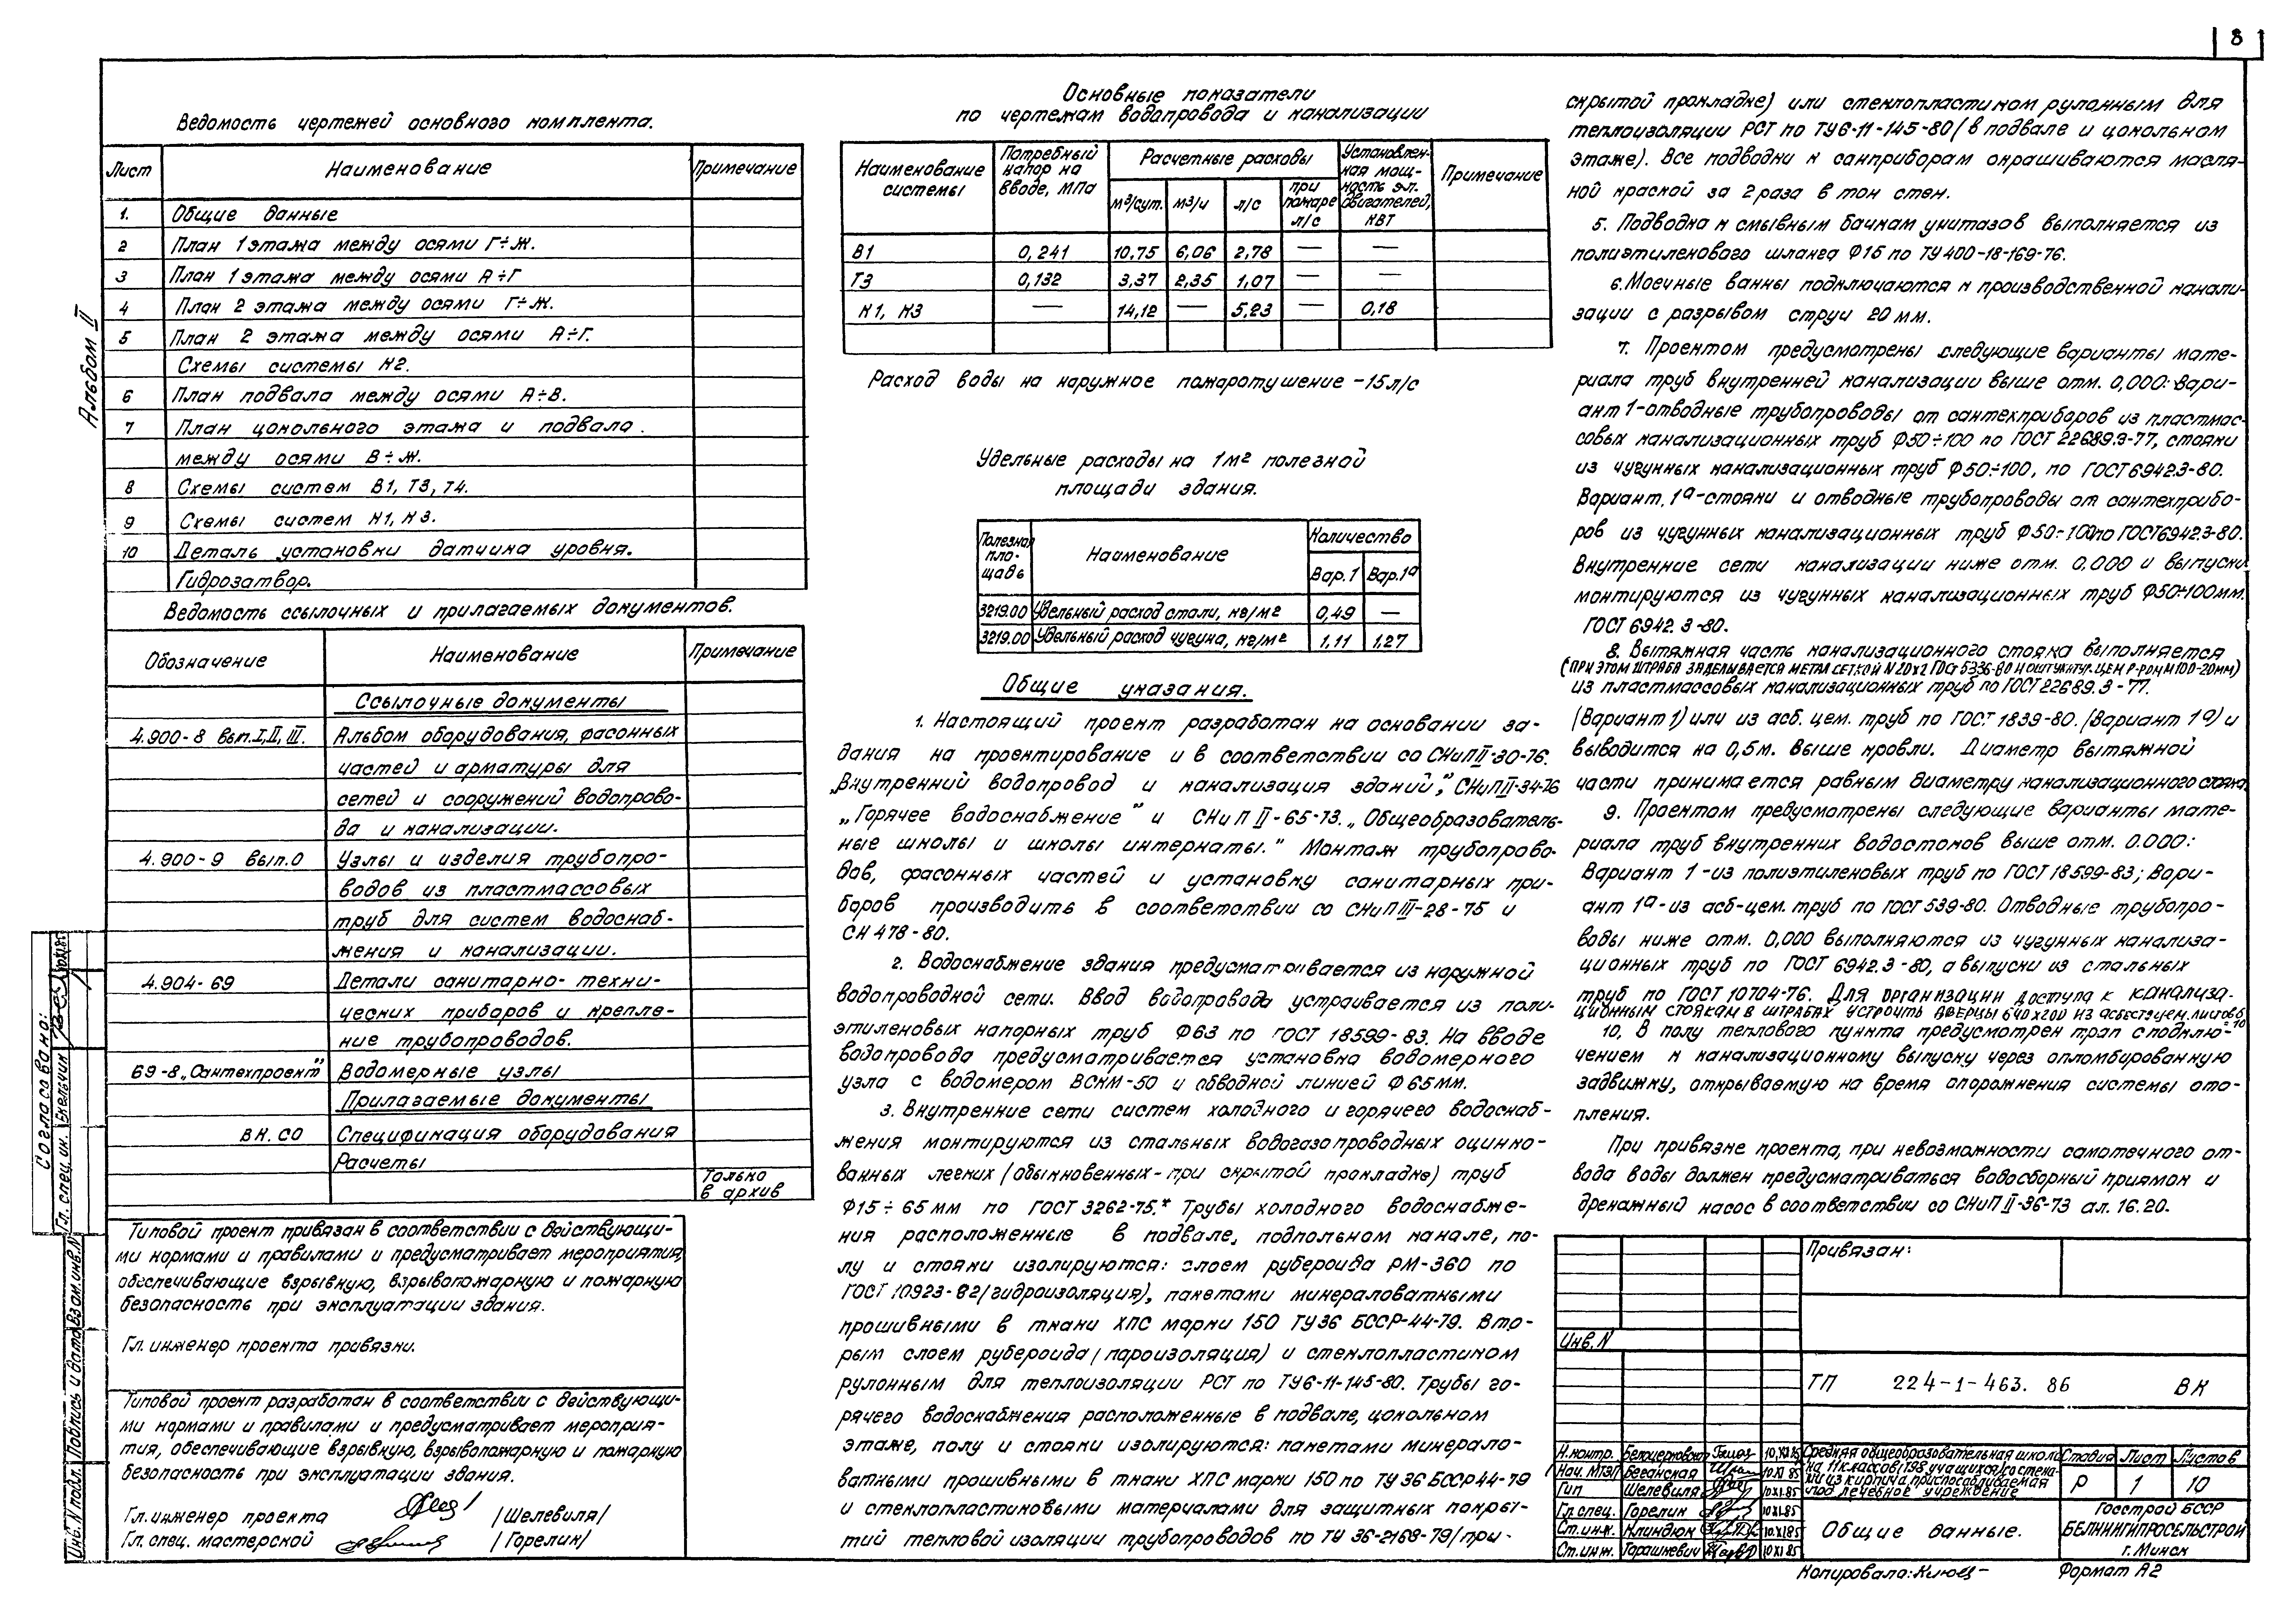 8
Альбом II
Ведомость чертежей основного комплекта.
Лист Наименование Примечание
1. Общие данные
2 План 1 этажа между осями Г÷Ж.
3 План 1 этажа между осями А÷Г
4 План 2 этажа между осями Г÷Ж.
5 План 2 этажа между осями А÷Г.
Схемы системы К2.
6 План подвала между осями А÷В.
7 План цокольного этажа и подвала.
между осями В÷Ж.
8 Схемы систем В1, Т3, Т4.
9 Схемы систем К1, К3.
10 Деталь установки датчика уровня.
Гидрозатвор.
Ведомость ссылочных и прилагаемых документов.
Обозначение Наименование Примечание
Ссылочные документы
4.900-8 вып.I,II,III. Альбом оборудования, фасонных
частей и арматуры для
сетей и сооружений водопрово-
да и канализации.
4.900-9 вып.0 Узлы и изделия трубопро-
водов из пластмассовых
труб для систем водоснаб-
жения и канализации.
4.904-69 Детали санитарно-техни-
ческих приборов и крепле-
ние трубопроводов.
69-8 „Сантехпроект" Водомерные узлы
Прилагаемые документы
ВК. СО Спецификация оборудования
Расчеты
Только
в архив
Типовой проект привязан в соответствии с действующи-
ми нормами и правилами и предусматривает мероприятия,
обеспечивающие взрывную, взрывопожарную и пожарную
безопасность при эксплуатации здания.
Гл. инженер проекта привязки.
Типовой проект разработан в соответствии с действующи-
ми нормами и правилами и предусматривает мероприя-
тия, обеспечивающие взрывную, взрывопожарную и пожарную
безопасность при эксплуатации здания.
Гл. инженер проекта /Шелевиля/
Гл. спец. мастерской /Горелин/
Согласовано:
Гл. спец. ин. Екельчик 10.XI.85
Инв.N подл. Подпись и дата Взам.инв.N
Основные показатели
по чертежам водопровода и канализации
Наименование системы Потребный напор на вводе, МПа Расчетные расходы Установлен-ная мощ-ность эл. двигателей, кВт Примечание
м³/сут. м³/ч л/с при пожаре л/с
В1 0,241 10,75 6,06 2,78 — —
Т3 0,132 3,37 2,35 1,07 — —
К1, К3 — 14,12 — 5,23 — 0,18
Расход воды на наружное пожаротушение - 15 л/с
Удельные расходы на 1м² полезной
площади здания.
Полезная пло-щадь Наименование Количество
Вар.1 Вар.1а
3219.00 Удельный расход стали, кг/м² 0,49 —
3219.00 Удельный расход чугуна, кг/м² 1,11 1,27
Общие указания.
1. Настоящий проект разработан на основании за-
дания на проектирование и в соответствии со СНиП II-30-76.
„Внутренний водопровод и канализация зданий", СНиП II-34-76
„Горячее водоснабжение" и СНиП II-65-73. „Общеобразователь-
ные школы и школы интернаты." Монтаж трубопрово-
дов, фасонных частей и установку санитарных при-
боров производить в соответствии со СНиП III-28-75 и
СН 478-80.
2. Водоснабжение здания предусматривается из наружной
водопроводной сети. Ввод водопровода устраивается из поли-
этиленовых напорных труб Ф63 по ГОСТ 18599-83. На вводе
водопровода предусматривается установка водомерного
узла с водомером ВСКМ-50 и обводной линией Ф65мм.
3. Внутренние сети систем холодного и горячего водоснаб-
жения монтируются из стальных водогазопроводных оцинко-
ванных легких (обыкновенных-при скрытой прокладке) труб
Ф15÷65мм по ГОСТ 3262-75.* Трубы холодного водоснабже-
ния расположенные в подвале, подпольном канале, по-
лу и стояки изолируются: слоем рубероида РМ-360 по
ГОСТ 10923-82 (гидроизоляция), пакетами минераловатными
прошивными в ткани ХПС марки 150 ТУ36 БССР-44-79. Вто-
рым слоем рубероида (пароизоляция) и стеклопластиком
рулонным для теплоизоляции РСТ по ТУ6-11-145-80. Трубы го-
рячего водоснабжения расположенные в подвале, цокольном
этаже, полу и стояки изолируются: пакетами минерало-
ватными прошивными в ткани ХПС марки 150 по ТУ 36 БССР 44-79
и стеклопластиковыми материалами для защитных покры-
тий тепловой изоляции трубопроводов по ТУ 36-2168-79 (при
скрытой прокладке) или стеклопластиком рулонным для
теплоизоляции РСТ по ТУ6-11-145-80 (в подвале и цокольном
этаже). Все подводки к санприборам окрашиваются масля-
ной краской за 2 раза в тон стен.
5. Подводка к смывным бачкам унитазов выполняется из
полиэтиленового шланга Ф15 по ТУ400-18-169-76.
6. Моечные ванны подключаются к производственной канали-
зации с разрывом струи 20 мм.
7. Проектом предусмотрены следующие варианты мате-
риала труб внутренней канализации выше отм. 0,000: Вари-
ант 1-отводные трубопроводы от сантехприборов из пластмас-
совых канализационных труб Ф50÷100 по ГОСТ 22689.3-77, стояки
из чугунных канализационных труб Ф50÷100, по ГОСТ 6942.3-80.
Вариант.1а-стояки и отводные трубопроводы от сантехприбо-
ров из чугунных канализационных труб Ф50÷100 по ГОСТ 6942.3-80.
Внутренние сети канализации ниже отм. 0.000 и выпуски
монтируются из чугунных канализационных труб Ф50÷100мм.
ГОСТ 6942.3-80.
8. Вытяжная часть канализационного стояка выполняется
(ПРИ ЭТОМ ШТРАБА ЗАДЕЛЫВАЕТСЯ МЕТАЛ СЕТКОЙ N 20x2 ГОСТ 5336-80 И ОШТУКАТУР. ЦЕМ Р-РОМ М100-20мм)
из пластмассовых канализационных труб по ГОСТ 22689.3-77.
(Вариант 1) или из асб. цем. труб по ГОСТ 1839-80. (Вариант 1а) и
выводится на 0,5м. выше кровли. Диаметр вытяжной
части принимается равным диаметру канализационного стояка.
9. Проектом предусмотрены следующие варианты мате-
риала труб внутренних водостоков выше отм. 0.000:
Вариант 1-из полиэтиленовых труб по ГОСТ 18599-83; Вари-
ант 1а-из асб-цем. труб по ГОСТ 539-80. Отводные трубопро-
воды ниже отм. 0,000 выполняются из чугунных канализа-
ционных труб по ГОСТ 6942.3-80, а выпуски из стальных
труб по ГОСТ 10704-76. Для организации доступа к канализа-
ЦИОННЫМ СТОЯКАМ В ШТРАБАХ УСТРОИТЬ ДВЕРЦЫ 640x200 ИЗ АСБЕСТЦЕМ. ЛИСТОВ δ=10
10. В полу теплового пункта предусмотрен трап с подклю-
чением к канализационному выпуску через опломбированную
задвижку, открываемую на время опорожнения системы ото-
пления.
При привязке проекта, при невозможности самотечного от-
вода воды должен предусматриваться водосборный приямок и
дренажный насос в соответствии со СНиП II-36-73 ал. 16.20.
Привязан:
Инв. N
ТП 224-1-463.86 ВК
Н.контр. Белоцерковский 10.XI.85
Нач. МТЭП Беганская 10.XI.85
Гип Шелевиля 10.XI.85
Гл.спец. Горелин 10.XI.85
Ст.инж. Клиндюк 10.XI.85
Ст.инж. Торашкевич 10.XI.85
Средняя общеобразовательная школа
на 11 классов (198 учащихся) со стена-
ми из кирпича, приспособливаемая
под лечебное учреждение
Стадия Лист Листов
Р 1 10
Общие данные.
Госстрой БССР
БЕЛНИИГИПРОСЕЛЬСТРОЙ
г. Минск
Копировала: Формат А2